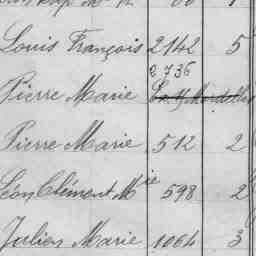 Louis François 2142 5
2736
Pierre Marie
Pierre Marie 512 2
Léon Clément Mie 598 2
Julien Marie 1064 3